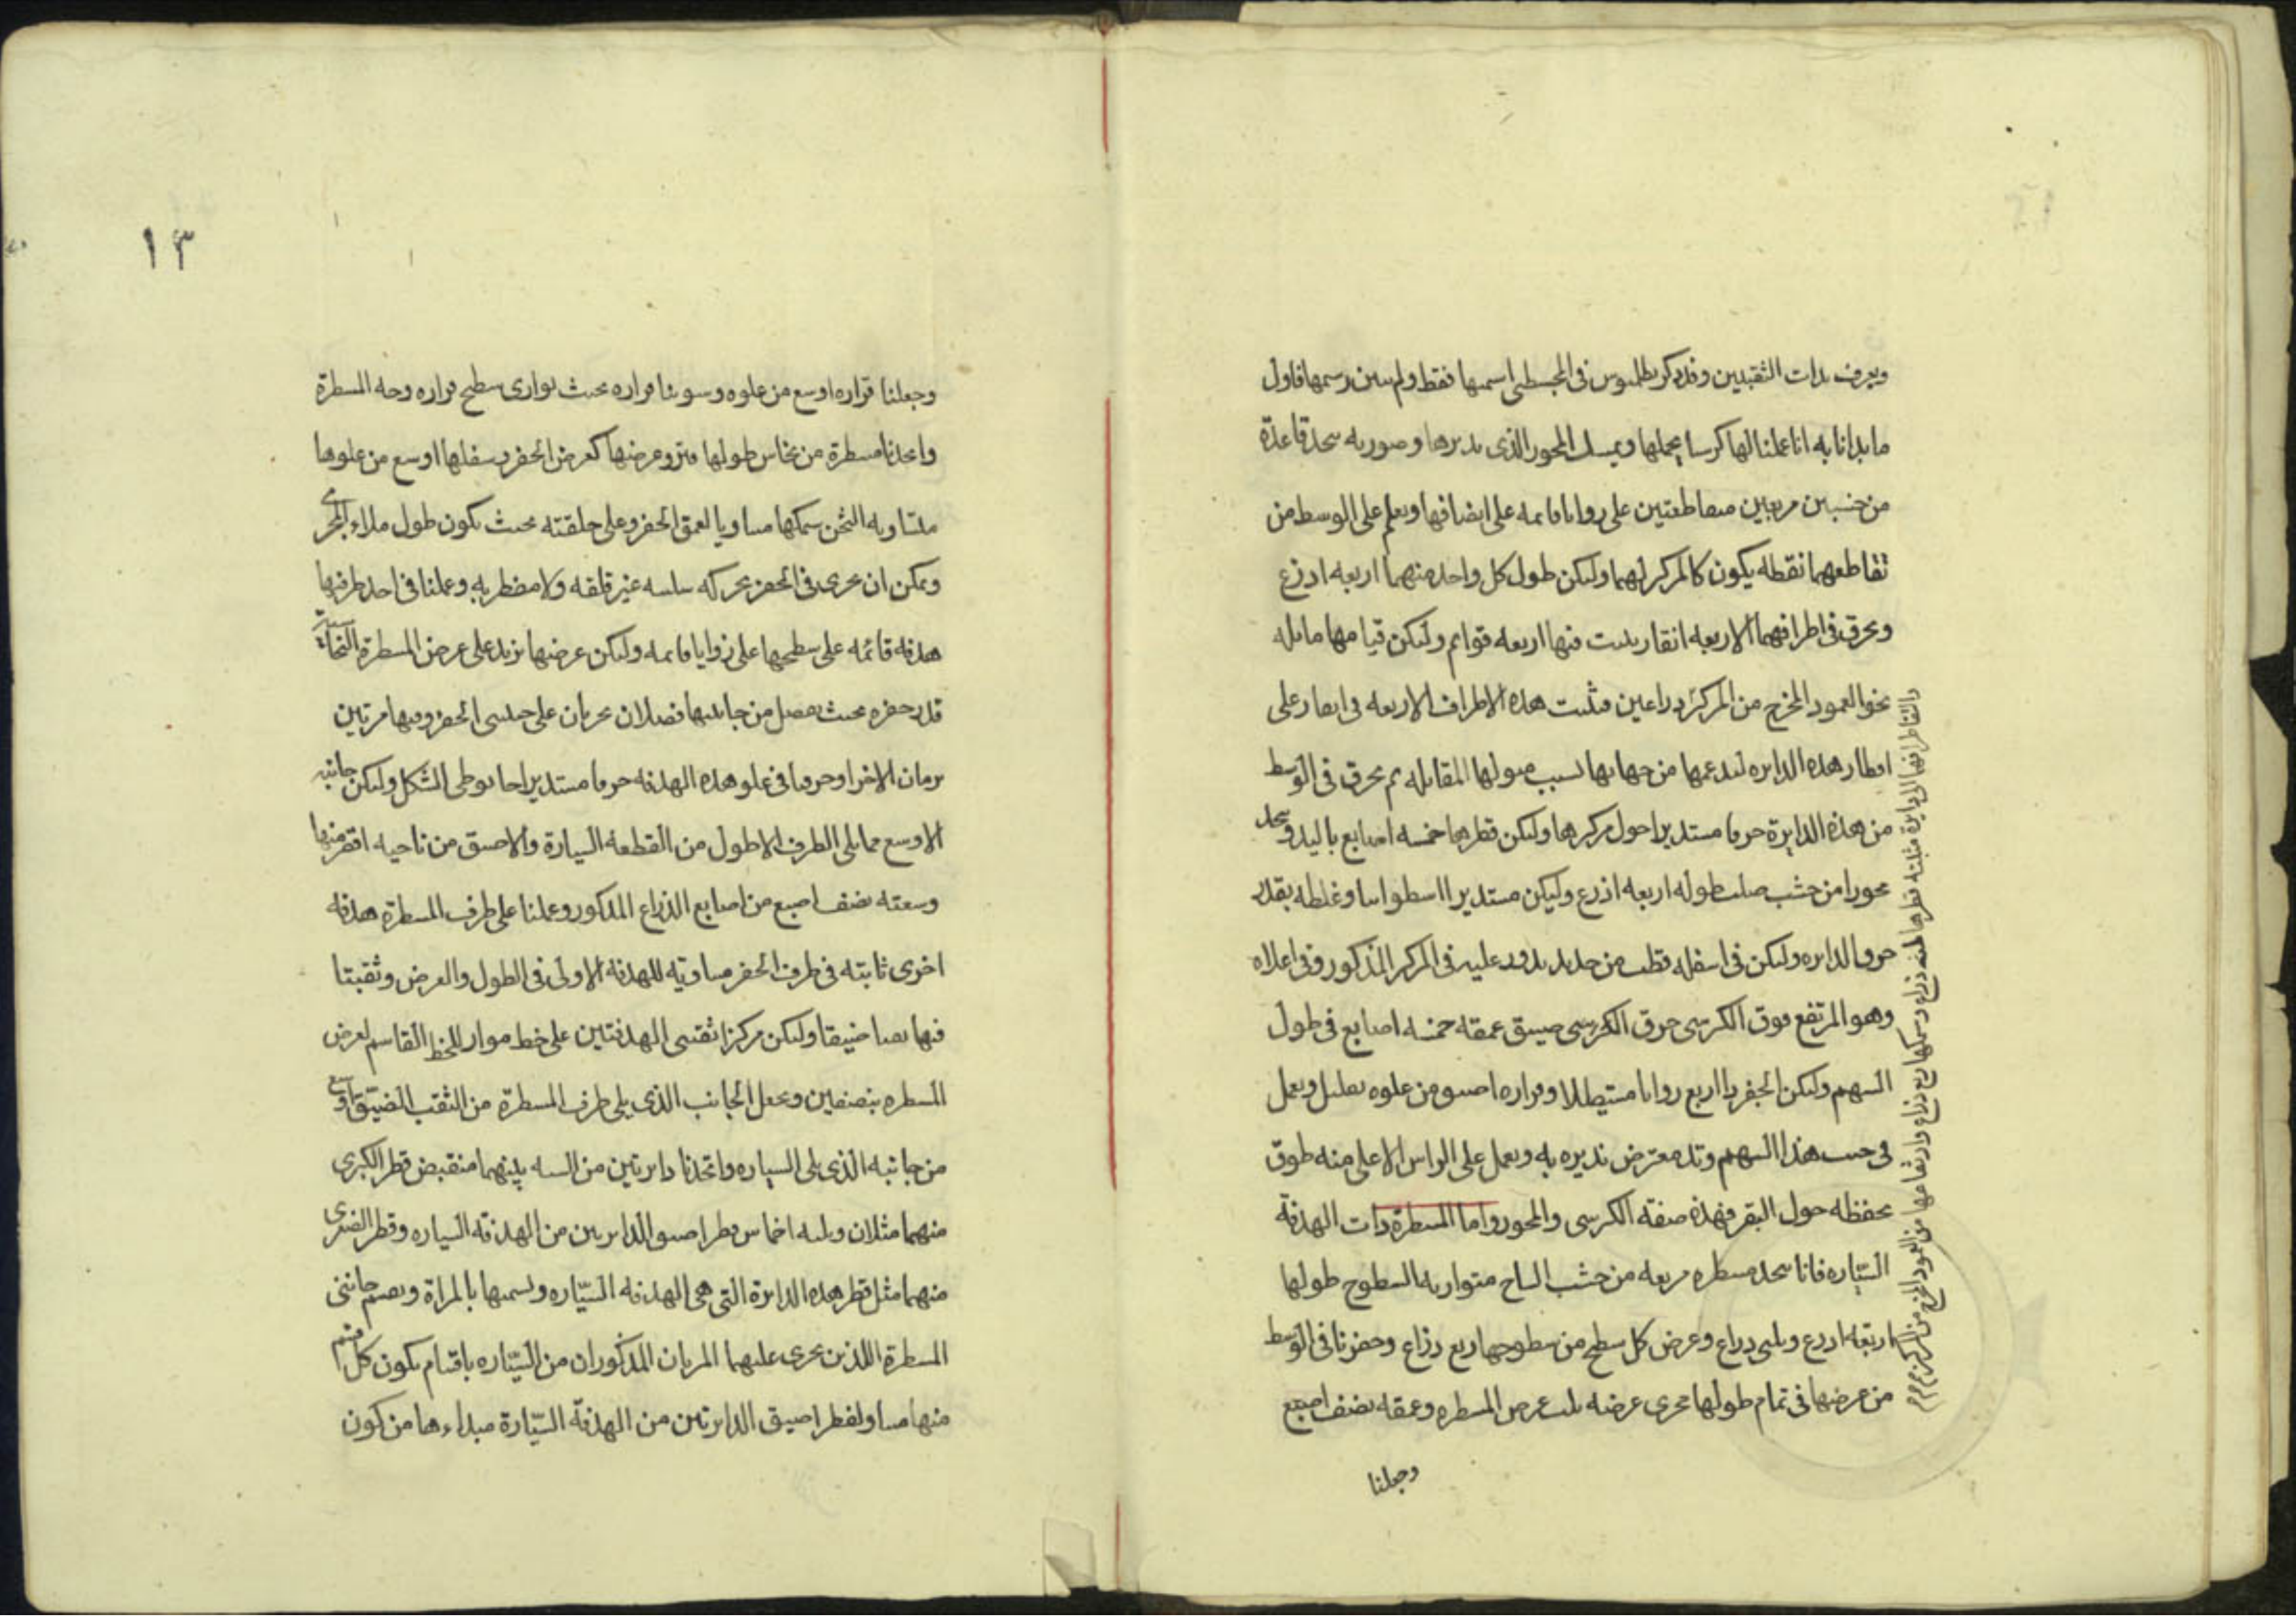 ويعرف بذات الثقبتين وقد ذكر بطلميوس في المجسطي اسمها فقط ولم يبين رسمها فاول
ما بدانا به انا عملنا لها كرسيا يحملها ويمسك المحور الذي يديرها وصورته نتخذ قاعدة
من خشبتين مربعتين متقاطعتين على زوايا قايمه على انصافها ونعلم على الوسط من
تقاطعهما نقطه يكون كالمركز لهما وليكن طول كل واحد منهما اربعه اذرع
ونخرق في اطرافهما الاربعه انقار يثبت فيها اربعه قوايم وليكن قيامها مايله
نحو العمود المخرج من المركز ذراعين فثبت هذه الاطراف الاربعه في انقار على
اقطار هذه الدايره لتدعمها من جهاتها لسبب ميولها المقابله ثم نخرق في الوسط
من هذه الدايرة خرقا مستديرا حول مركزها وليكن قطرها خمسه اصابع باليد ونتخذ
محورا من خشب صلب طوله اربعه اذرع وليكن مستديرا اسطوانيا وغلظه بقدر
خرق الدايره وليكن في اسفله قطب من حديد يدور عليه في المركز المذكور وفي اعلاه
وهو المرتفع فوق الكرسى خرق الكرسي ضيق عمقه خمسه اصابع في طول
السهم وليكن الحفر ذا اربع زوايا مستطيلا وقراره اضيق من علوه بقليل ونعمل
في جنب هذا السهم وتد معترض نديره به ونعمل على الراس الاعلى منه طوق
يحفظه حول النقر فهذه صفة الكرسي والمحور واما المسطرة ذات الهدفة
السيّاره فانا نتخذ مسطره مربعه من خشب الساج متوازيه السطوح طولها
اربعه اذرع وثلثي ذراع وعرض كل سطح من سطوحها ربع ذراع وحفرنا في الوسط
من عرضها في تمام طولها مجرى عرضه ثلث عرض المسطره وعمقه نصف اصبع
وجعلنا
١٣
وجعلنا قراره اوسع من علوه وسوينا قراره بحيث يوازي سطح قراره وجه المسطرة
واتخذنا مسطرة من نحاس طولها وعرضها كعرض الحفر وسفلها اوسع من علوها
متساويه الثخن سمكها مساويا لعمق الحفر وعلى خلقته بحيث يكون طول ملاء المجرى
ويمكن ان تجرى في الحفر بحركه سلسه غير قلقه ولا مضطربه وعملنا في احد طرفيها
هدفه قائمه على سطحها على زوايا قايمه وليكن عرضها يزيد على عرض المسطرة النحاسية
قدر حفره بحيث يفضل من جانبيها فضلان يجريان على جنبتي الحفر وفيها مرتين
الاخر وخرقنا في علو هذه الهدفه خرقا مستديرا مخروطي الشكل وليكن جانبه
الاوسع مما يلى الطرف الاطول من القطعه السيارة والاضيق من ناحيه اقصر منها
وسعته نصف اصبع من اصابع الذراع المذكور وعملنا على طرف المسطرة هدفه
اخرى ثابته في طرف الحفر مساويه للهدفه الاولى في الطول والعرض وثقبتا
فيها ثقبا ضيقا وليكن مركزا ثقبتي الهدفتين على خط مواز للخط القاسم لعرض
المسطره بنصفين ونجعل الجانب الذي يلي طرف المسطرة من الثقب الضيق اوسع
من جانبه الذي يلى السياره واتخذنا دايرتين من الشبه بينهما مقبض قطر الكبرى
منهما مثلان وثلثه اخماس قطر اضيق الدايرتين من الهدفه السياره وقطر الصغرى
منهما مثل قطر هذه الدايرة التي هي الهدفه السيّاره ونسمها بالمراة ونقسم جانبي
المسطرة اللذين تجرى عليهما المذكوران من السيّاره باقسام يكون كل قسم
منها مساو لقطر اضيق الدايرتين من الهدفة السيّارة مبداءها من كون